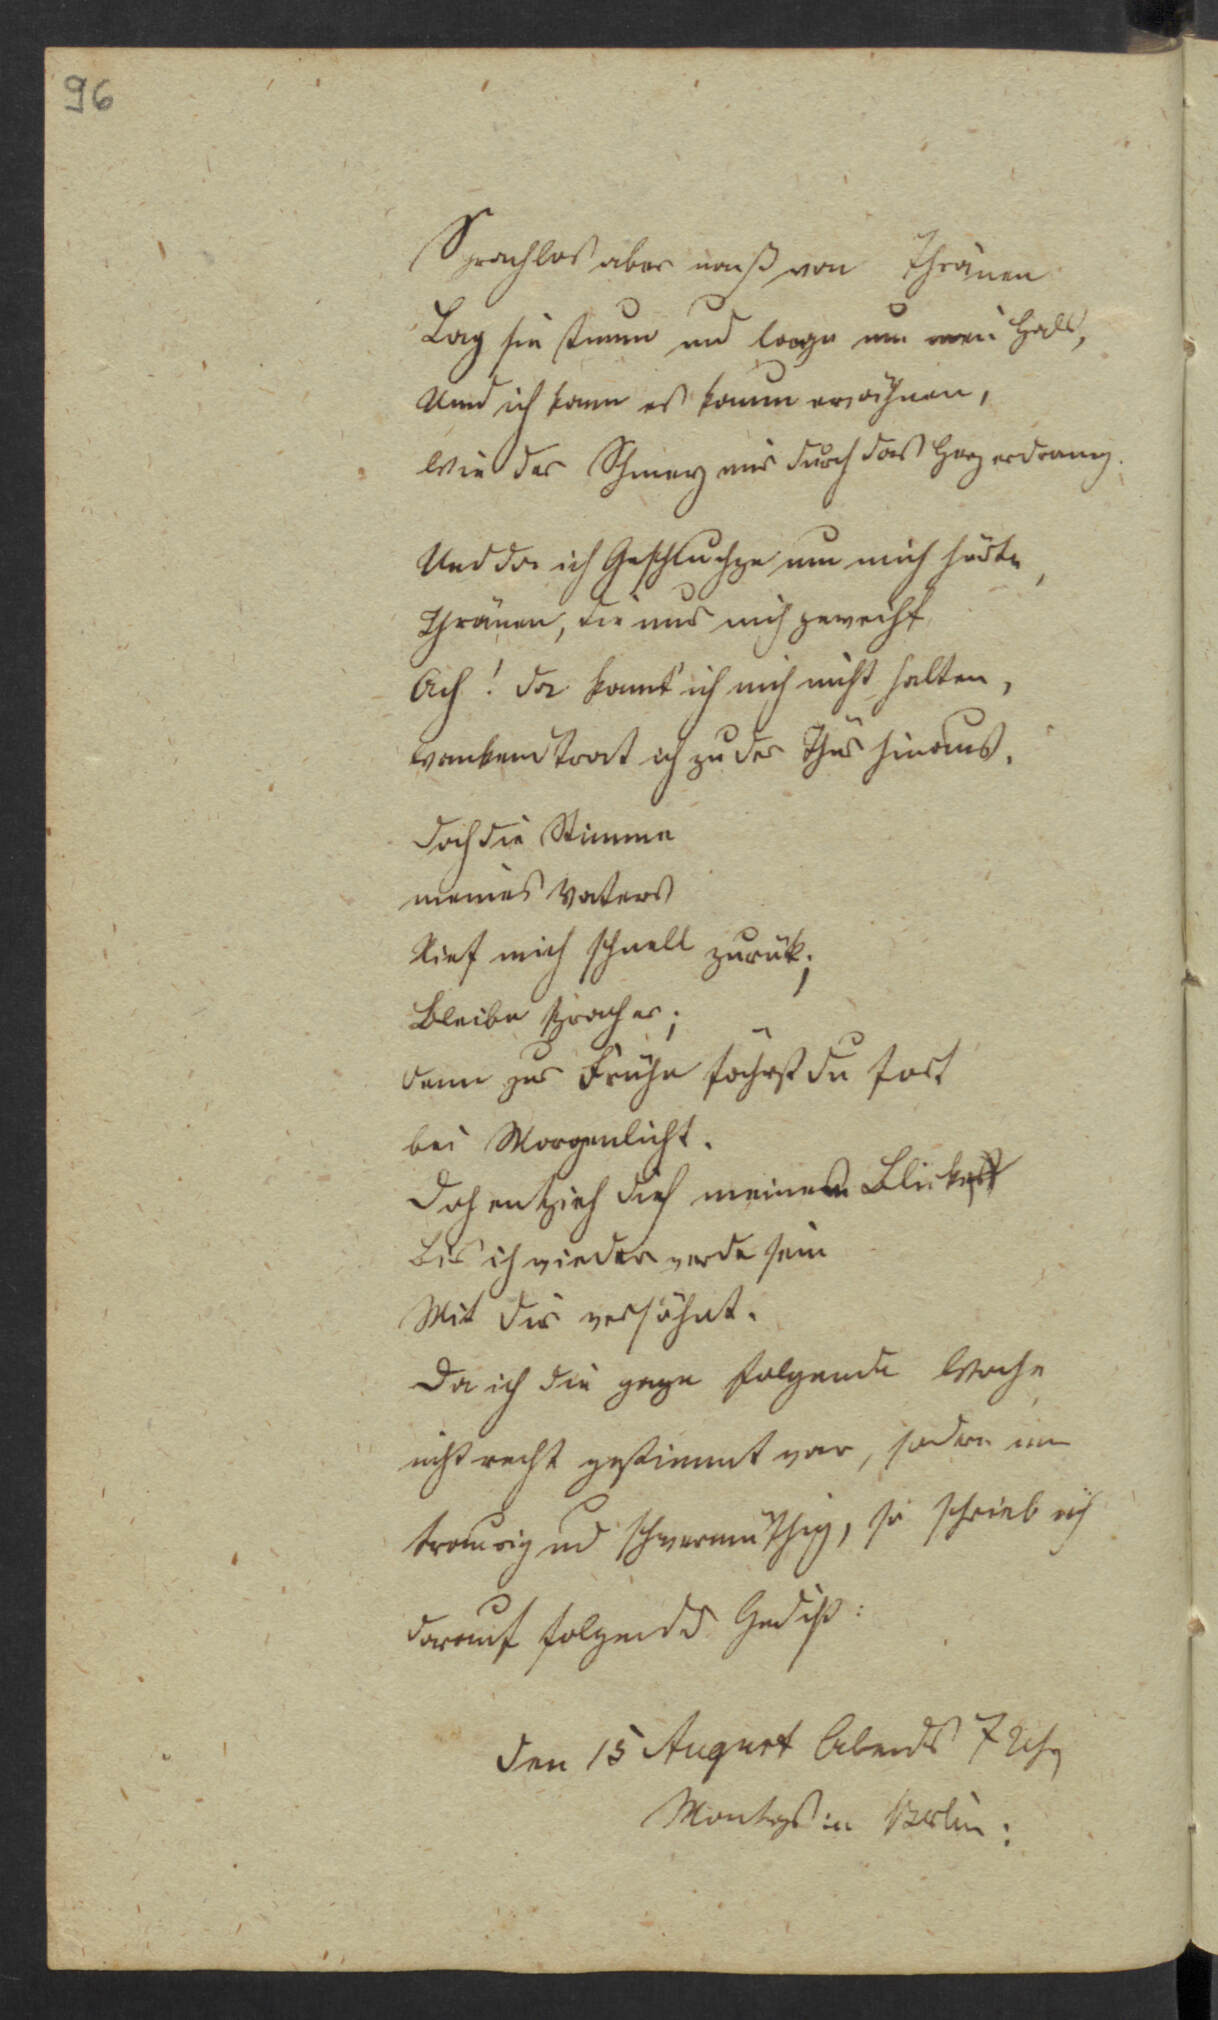 96
Sprachlos aber naß von Thränen
Lag sie stumm und lange um mein Hals,
Und ich kann es kaum erwähnen,
Wie der Schmerz mir durch das Herz erdrang.
Und da ich Geschluchze um mich hörte,
Thränen, die nur mich geweiht
Ach! da konnt' ich mich nicht halten,
wankend trat ich zu der Thür hinaus.
doch die Stimme
meines Vaters
Rief mich schnell zurük;
Bleibe sprach er;
denn zur Frühe fährst du fort
bei Morgenlicht.
Doch entzieh dich meinem Blick
Bis ich wieder werde sein
Mit dir versöhnt.
Da ich die ganze folgende Woche
nicht recht gestimmt war, sondern
traurig und schwermüthig, so schrieb ich
darauf folgendes Gedicht:
den 15 August Abends 7 Uhr
Montags in Berlin: